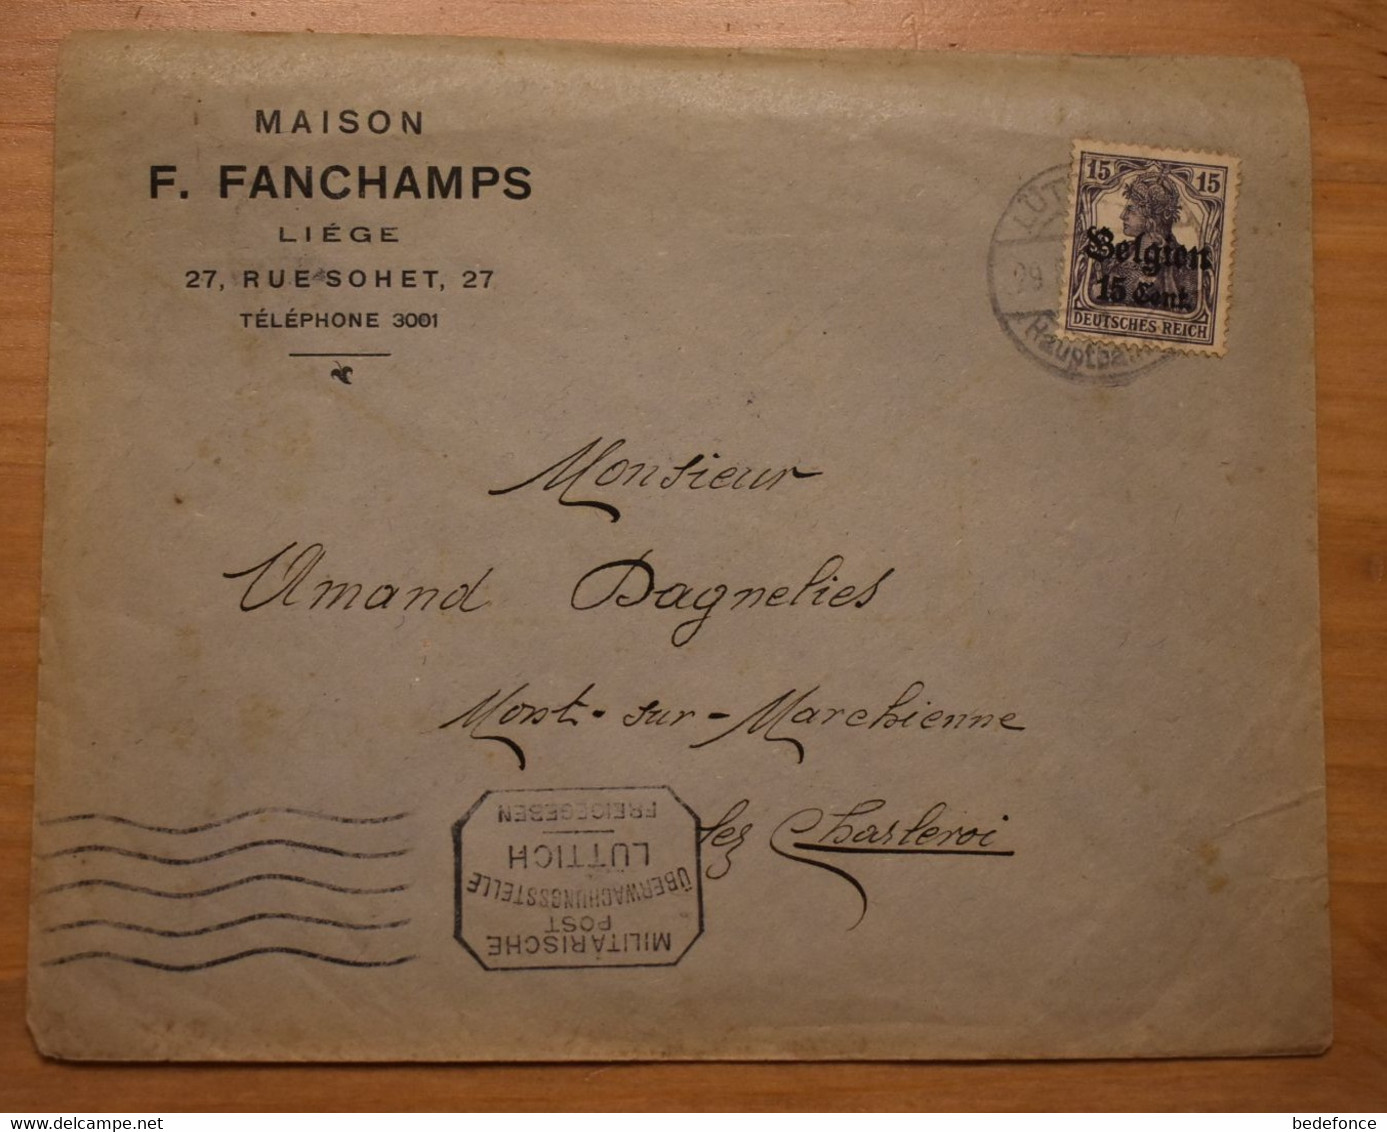 MAISON
F. FANCHAMPS
LIÉGE
27, RUE SOHET, 27
TÉLÉPHONE 3001
15 15
Belgien
15 Cent.
DEUTSCHES REICH
Monsieur
Amand Dagnelies
Mont-sur-Marchienne
lez Charleroi
MILITÄRISCHE
POST
ÜBERWACHUNGSSTELLE
LÜTTICH
FREIGEGEBEN
delcampe.net
bedefonce